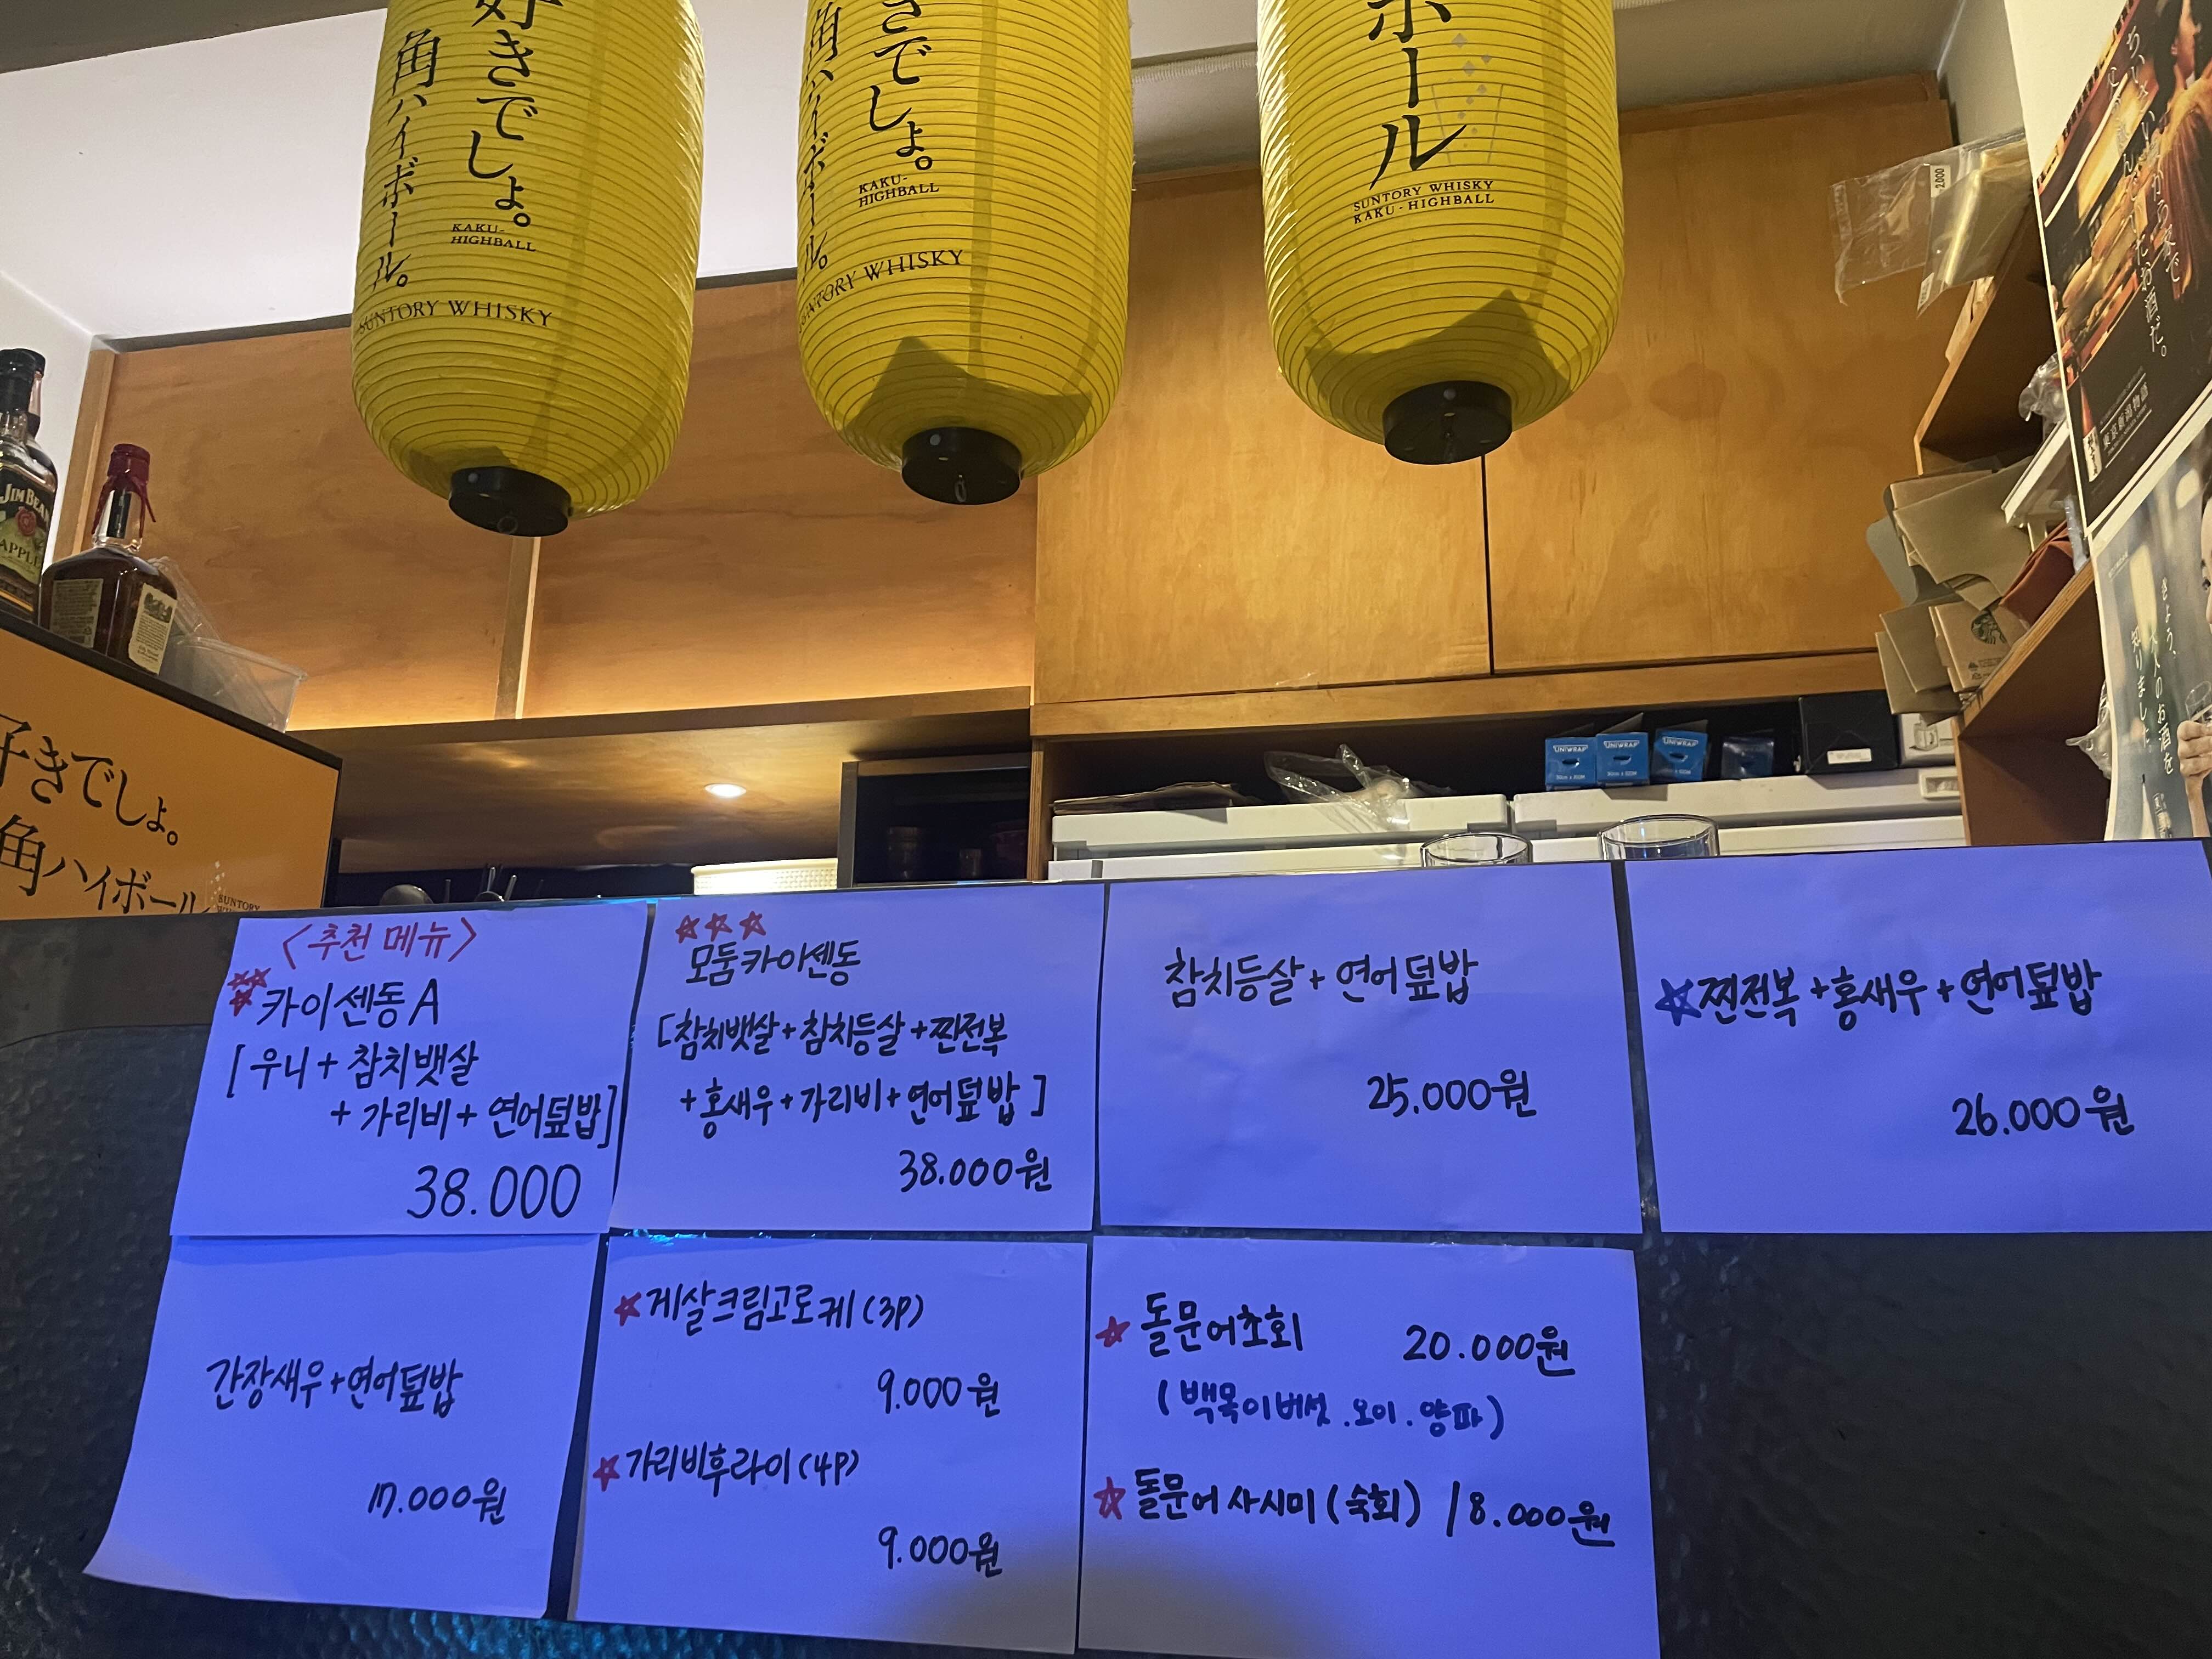 好きでしょ。
角ハイボール。
KAKU-
HIGHBALL
SUNTORY WHISKY
きでしょ。
角ハイボール。
KAKU-
HIGHBALL
SUNTORY WHISKY
ボール
SUNTORY WHISKY
KAKU-HIGHBALL
2,000
JIM BEAM
APPLE
好きでしょ。
角ハイボール
SUNTORY
UNIWRAP
UNIWRAP
UNIWRAP
<추천 메뉴>
카이센동 A
[우니 + 참치뱃살
+ 가리비 + 연어덮밥]
38.000
모둠카이센동
[참치뱃살+참치등살+찐전복
+홍새우+가리비+연어덮밥]
38.000원
참치등살+연어덮밥
25.000원
찐전복+홍새우+연어덮밥
26.000원
간장새우+연어덮밥
17.000원
게살크림고로케(3P)
9.000원
가리비후라이(4P)
9.000원
돌문어초회 20.000원
(백목이버섯.오이.양파)
돌문어 사시미(숙회) 18.000원